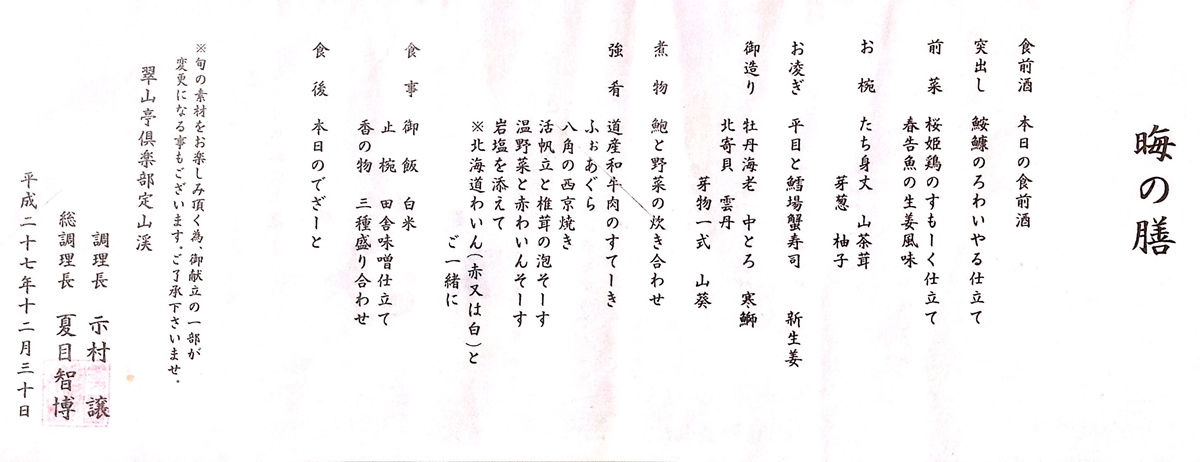 晦の膳
食前酒 本日の食前酒
突出し 鮟鱇のろわいやる仕立て
前菜 桜姫鶏のすもーく仕立て
春告魚の生姜風味
お椀 たち身丈 山茶茸
芽葱 柚子
お凌ぎ 平目と鱈場蟹寿司 新生姜
御造り 牡丹海老 中とろ 寒鰤
北寄貝 雲丹
芽物一式 山葵
煮物 鮑と野菜の炊き合わせ
強肴 道産和牛肉のすてーき
ふぉあぐら
八角の西京焼き
活帆立と椎茸の泡そーす
温野菜と赤わいんそーす
岩塩を添えて
※北海道わいん(赤又は白)と
ご一緒に
食事 御飯 白米
止椀 田舎味噌仕立て
香の物 三種盛り合わせ
食後 本日のでざーと
※旬の素材をお楽しみ頂く為、御献立の一部が
変更になる事もございます。ご了承下さいませ。
翠山亭倶楽部定山渓
調理長 示村 譲
総調理長 夏目智博
平成二十七年十二月三十日